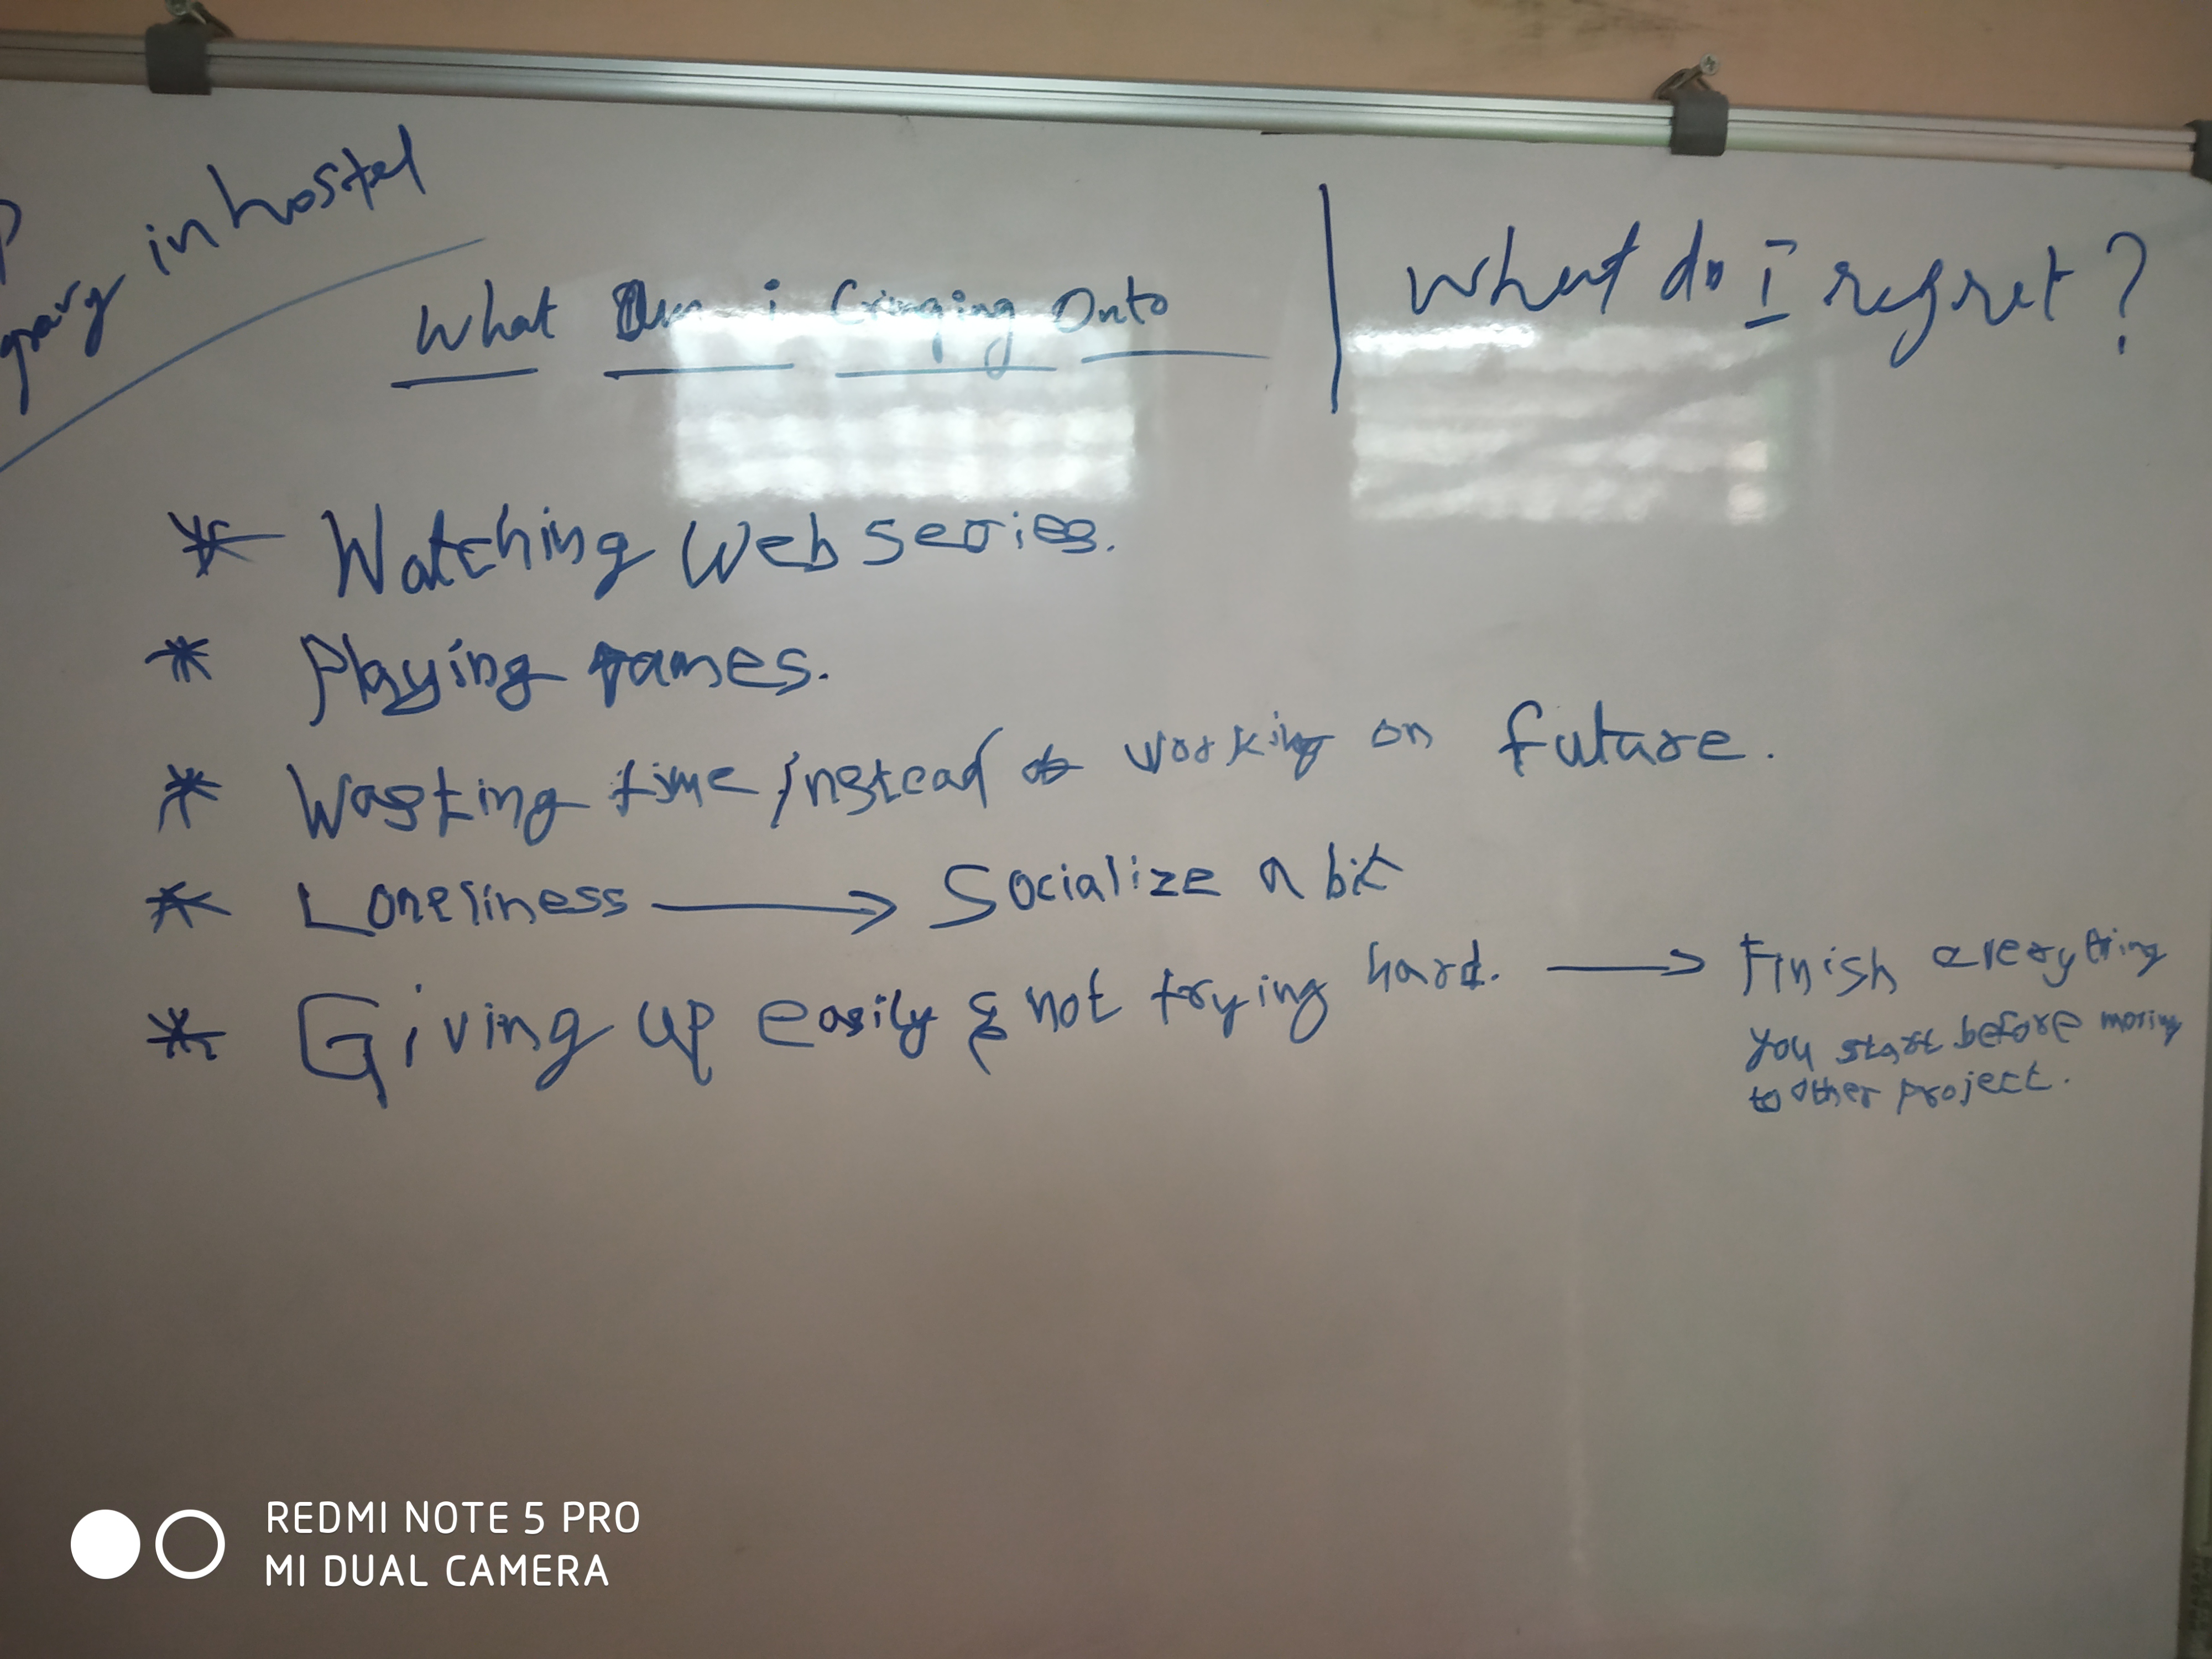 in hostel
What Am i Cringing Onto
What do I regret?
* Watching Web series.
* Playing games.
* Wasting time instead of working on future.
* Loneliness → Socialize a bit
* Giving up easily & not trying hard. → Finish everything
you start before moving
to other project.
REDMI NOTE 5 PRO
MI DUAL CAMERA